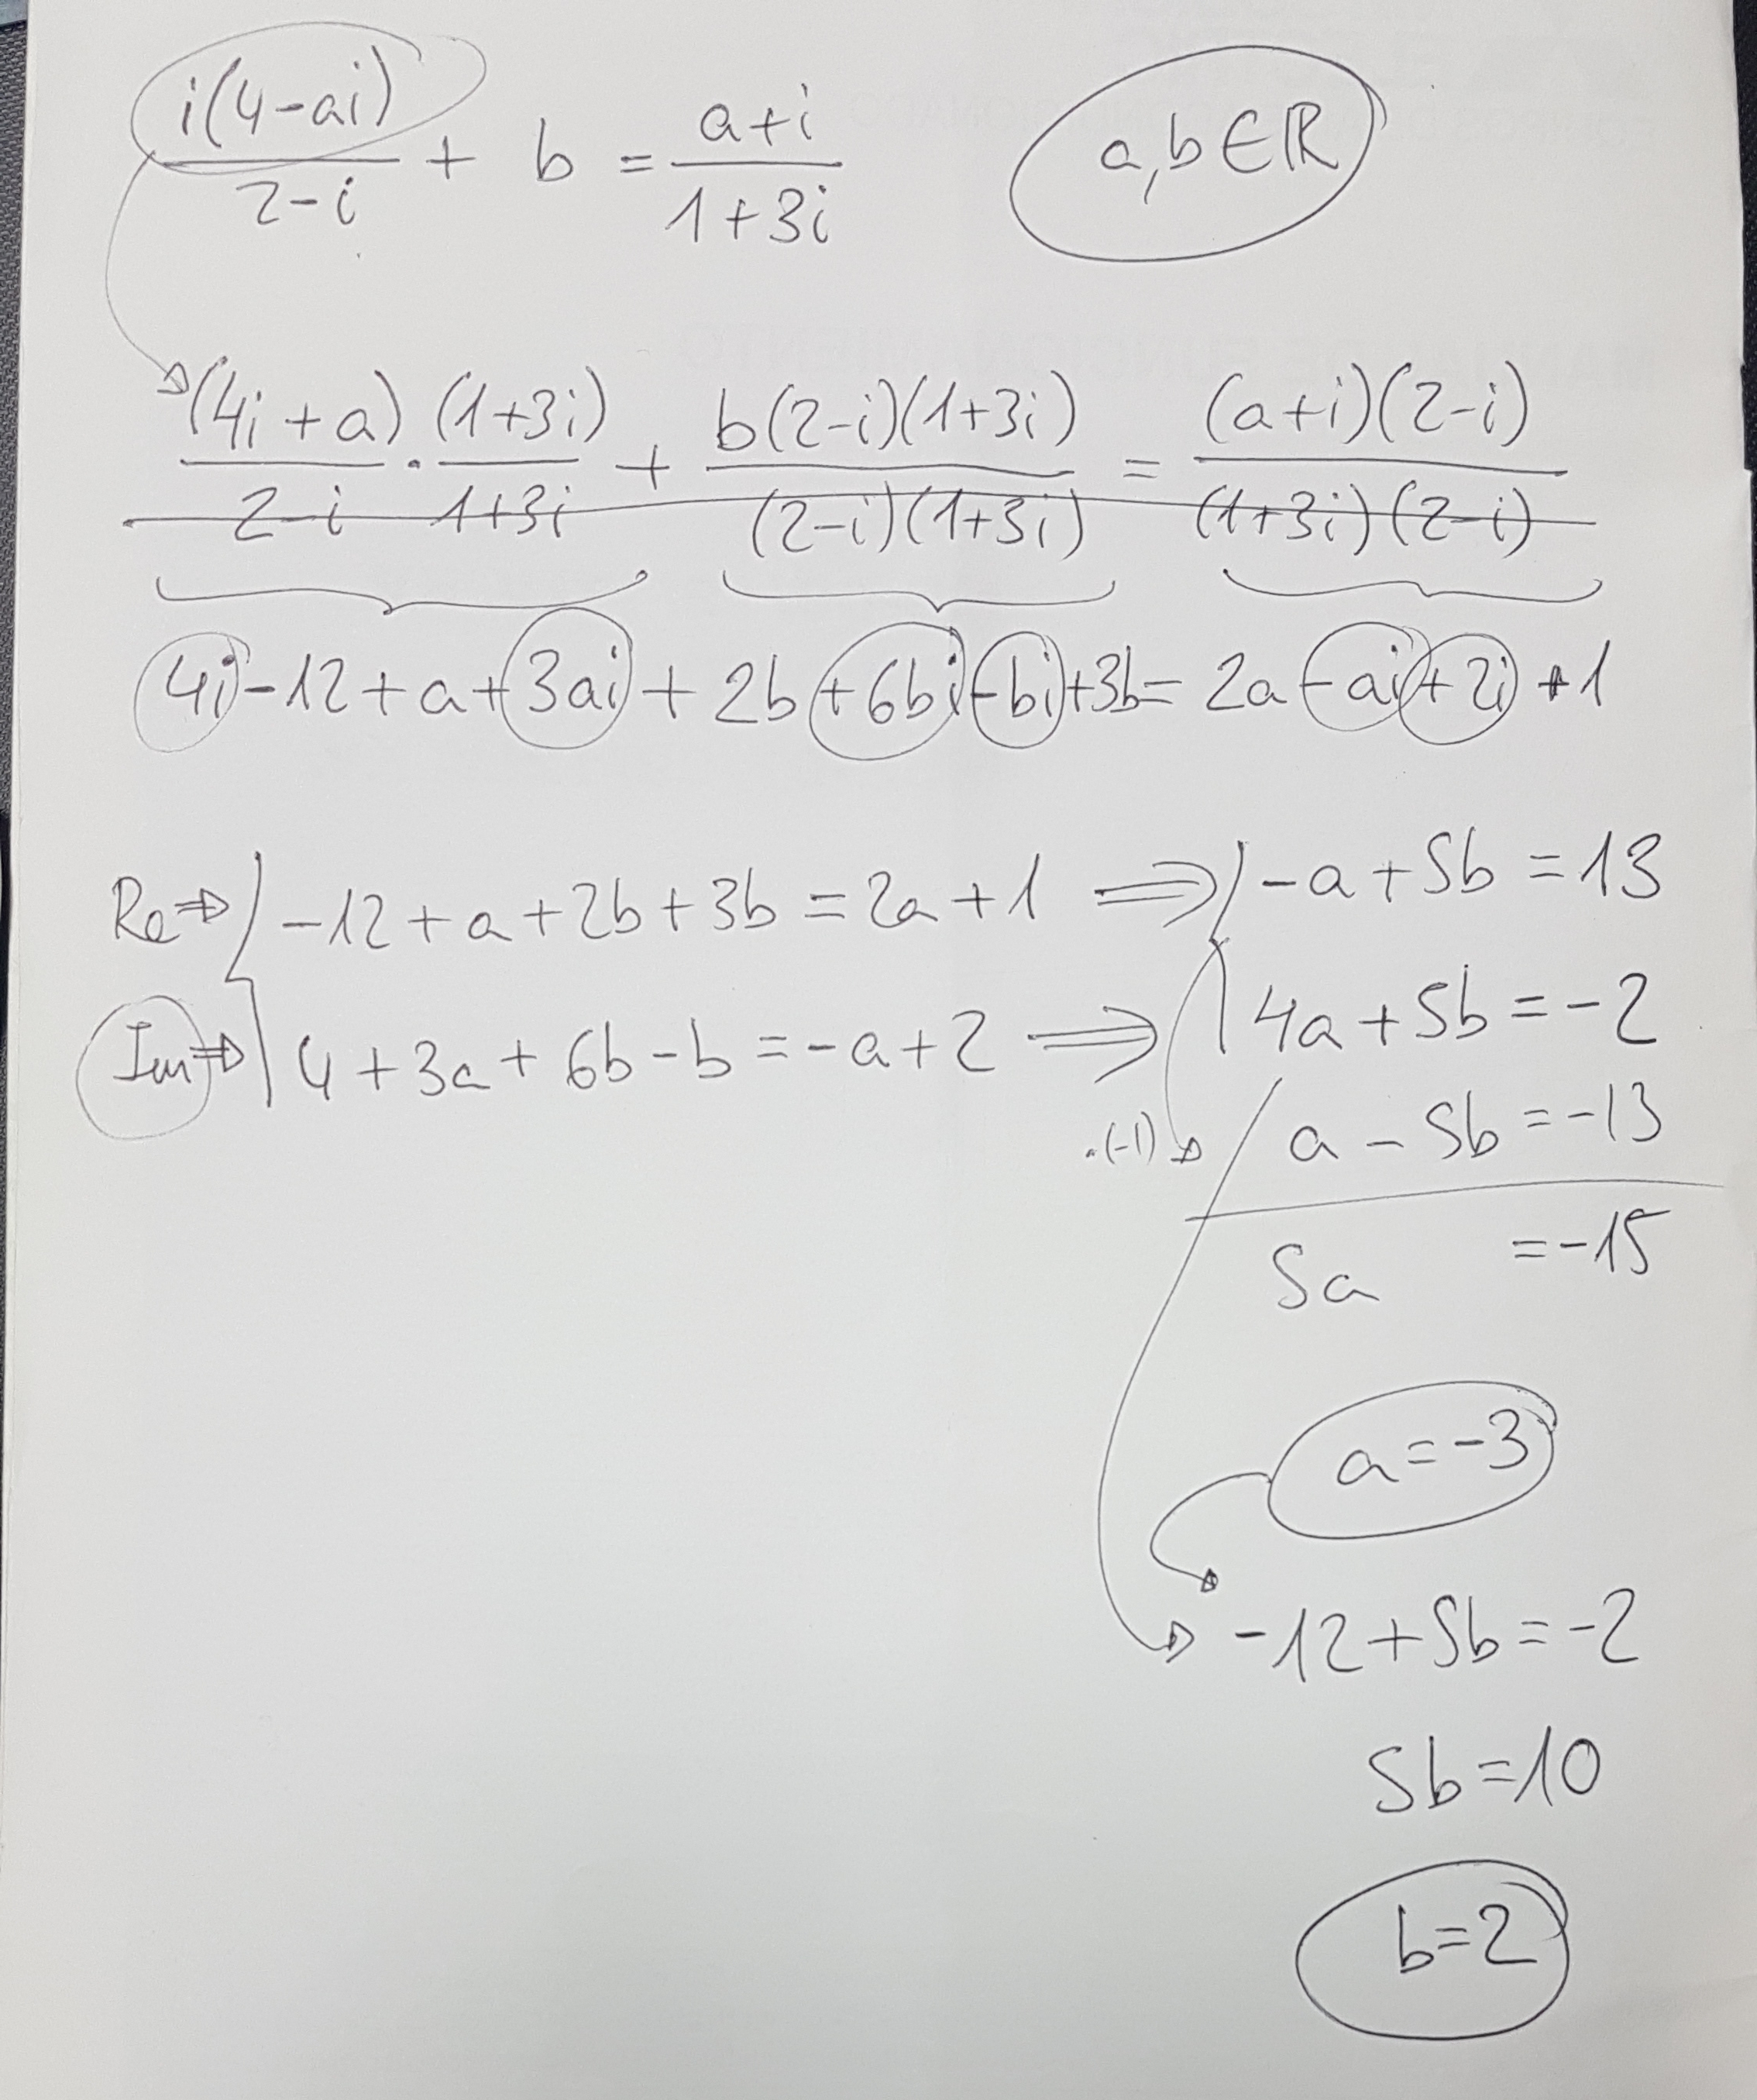 i(4-ai)/2-i + b = a+i/1+3i   a,b∈ℝ
(4i+a)/2-i · (1+3i)/1+3i + b(2-i)(1+3i)/(2-i)(1+3i) = (a+i)(2-i)/(1+3i)(2-i)
4i-12+a+3ai+2b+6bi-bi+3b=2a-ai+2i+1
Re⇒ -12+a+2b+3b=2a+1 ⟹ -a+5b=13
Im⇒ 4+3a+6b-b=-a+2 ⟹ 4a+5b=-2
·(-1) a-5b=-13
5a =-15
a=-3
-12+5b=-2
5b=10
b=2